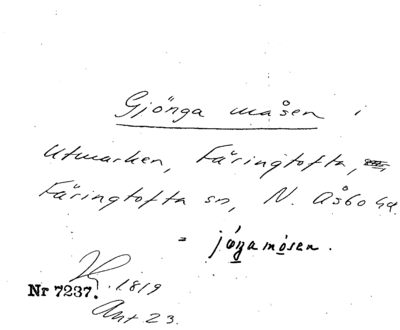 Gjönga måsen i
utmarken, Färingtofta,
Färingtofta sn, N. Åsbo hd.
= jóngamósen.
Nr 7237. 1819
Ant 23.